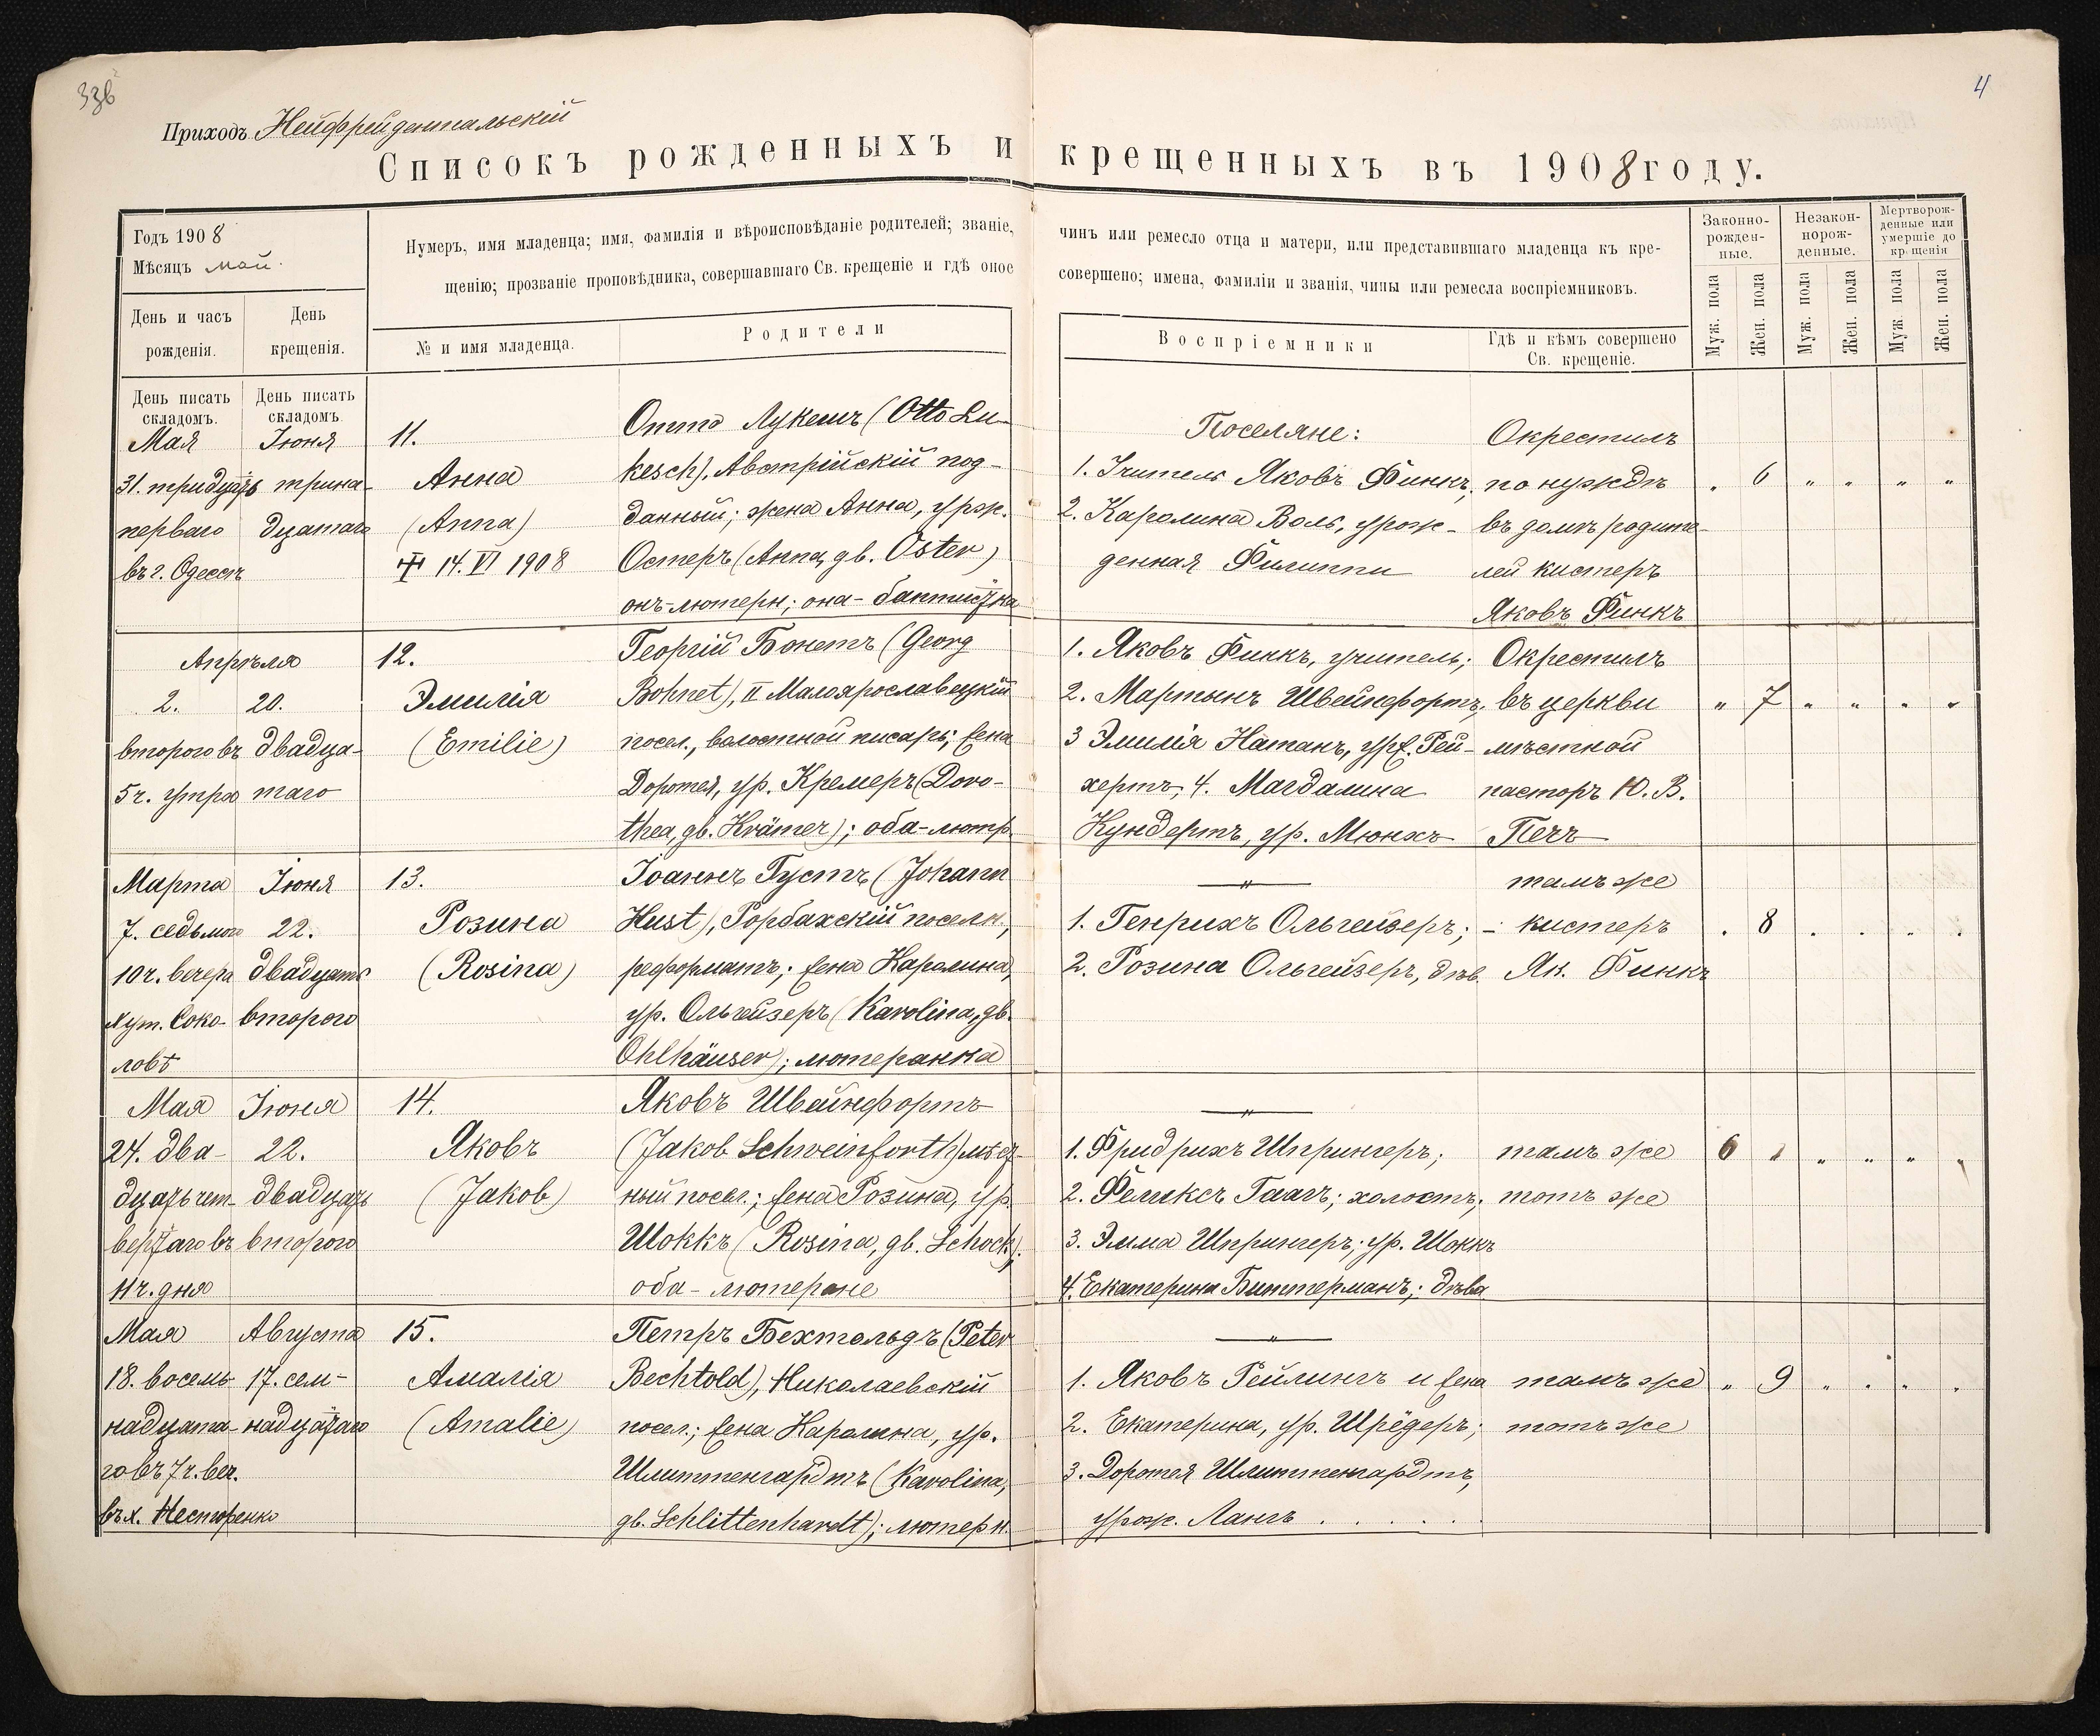 33б
4
Приходъ Нейфрейдентальскій
Списокъ рожденныхъ и крещенныхъ въ 1908 году.
Годъ 1908
Мѣсяцъ май.
Нумеръ, имя младенца; имя, фамилія и вѣроисповѣданіе родителей; званіе, чинъ или ремесло отца и матери, или представившаго младенца къ кре-
щенію; прозваніе проповѣдника, совершавшаго Св. крещеніе и гдѣ оное совершено; имена, фамиліи и званія, чины или ремесла воспріемниковъ.
Законно-
рожден-
ные.
Незакон-
норож-
денные.
Мертворож-
денные или
умершіе до
крещенія
Муж. пола
Жен. пола
Муж. пола
Жен. пола
Муж. пола
Жен. пола
День и часъ
рожденія.
День
крещенія.
№ и имя младенца.
Родители
Воспріемники
Гдѣ и кѣмъ совершено
Св. крещеніе.
День писать
складомъ.
День писать
складомъ.
Мая
31. тридцать
перваго
въ г. Одессѣ
Іюня
трина-
дцатаго
11.
Анна
(Anna)
14. VI 1908
Отто Лукешъ (Otto Lu-
kesch), Австрійскій под-
данный; жена Анна, урж.
Остеръ (Anna, gb. Oster)
онъ-лютерн; она-баптистка
Поселяне:
1. Учитель Яковъ Финкъ;
2. Каролина Воль, урож-
денная Филиппи
Окрестилъ
по нуждѣ
въ домѣ родите-
лей кистеръ
Яковъ Финкъ
" 6 " " " "
Апрѣля
2.
второго въ
5 ч. утра
20.
двадца-
таго
12.
Эмилія
(Emilie)
Георгій Бонетъ (Georg
Bohnet), II Малоярославецкій
посел., волостной писарь; жена
Доротея, ур. Кремеръ (Doro-
thea, gb. Krämer); оба-лютр.
1. Яковъ Финкъ, учитель;
2. Мартынъ Швейнфортъ;
3 Эмилія Натанъ, урж. Рей-
хертъ; 4. Магдалина
Кундертъ, ур. Мюнхъ
Окрестилъ
въ церкви
мѣстной
пасторъ Ю. В.
Печъ
" 7 " " " "
Марта
7. седьмого
10 ч. вечера
Хут. Соко-
ловѣ
Іюня
22.
двадцать
второго
13.
Розина
(Rosina)
Іоаннъ Густъ (Johann
Hust), Рорбахскій поселн.,
реформатъ; жена Каролина,
ур. Ольгейзеръ (Karolina, gb.
Ohlhäuser); лютеранка
—"—
1. Генрихъ Ольгейзеръ; -
2. Розина Ольгейзеръ, дѣв.
тамъ же
кистеръ
Як. Финкъ
. 8 . . . .
Мая
24. два-
дцать чет-
вертаго въ
11 ч. дня
Іюня
22.
двадцать
второго
14.
Яковъ
(Jakob)
Яковъ Швейнфортъ
(Jakob Schweinforth) мѣст-
ный посел.; жена Розина, ур.
Шоккъ (Rosina, gb. Schock);
оба-лютеране
—"—
1. Фридрихъ Шпрингеръ;
2. Феликсъ Гаагъ; холостъ;
3. Эмма Шпрингеръ; ур. Шоккъ
4. Екатерина Биттерманъ; дѣва
тамъ же
тотъ же
6 " " " " "
Мая
18. восемь-
надцата-
го въ 7 ч. веч.
въ х. Нестеренко
Августа
17. сем-
надцатаго
15.
Амалія
(Amalie)
Петръ Бехтольдъ (Peter
Bechtold), Николаевскій
посел.; жена Каролина, ур.
Шлиттенгардтъ (Karolina,
gb. Schlittenhardt); лютерн.
—"—
1. Яковъ Рейлингъ и жена
2. Екатерина, ур. Шрёдеръ;
3. Доротея Шлиттенгардтъ,
урож. Лангъ . . . . .
тамъ же
тотъ же
" 9 " . " .